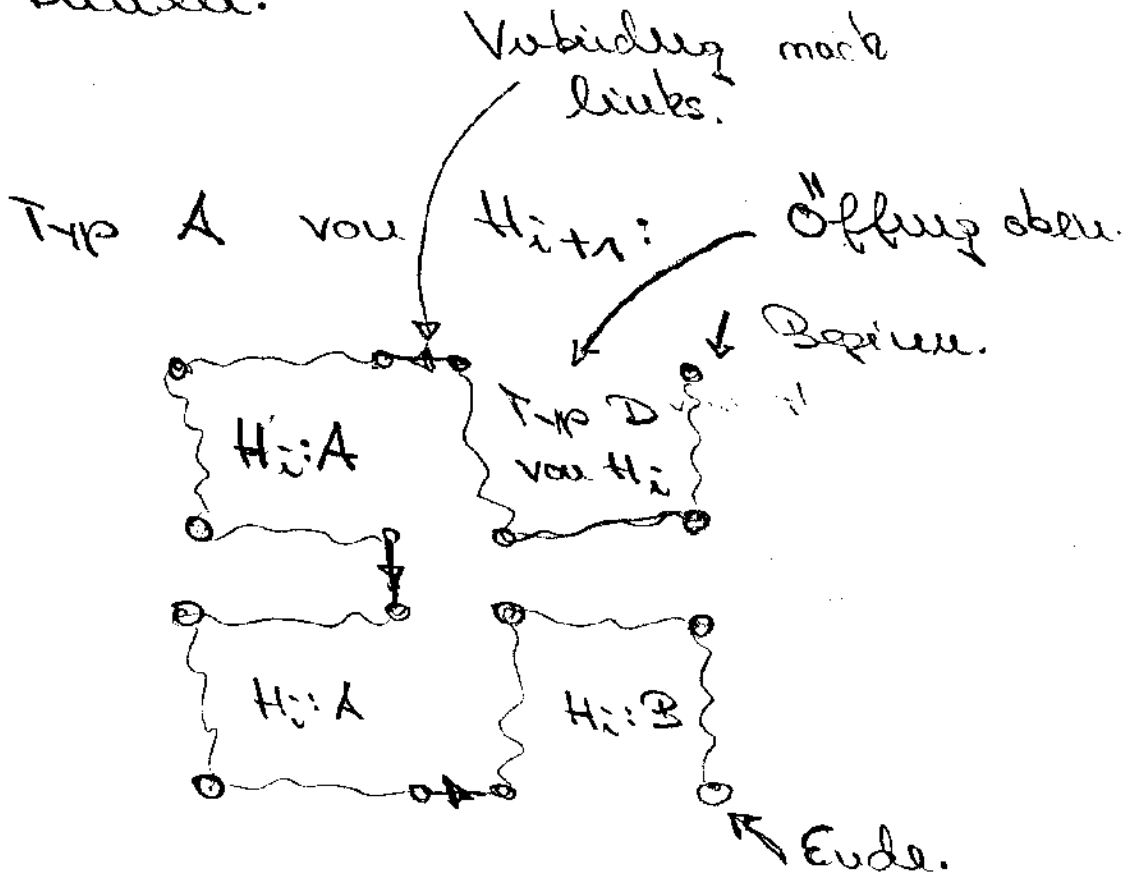 Verbindung nach
links.
Typ A von H_{i+1}: Öffnung oben.
Beginn.
H_i:A
Typ D
von H_i
H_i:A
H_i:B
Ende.